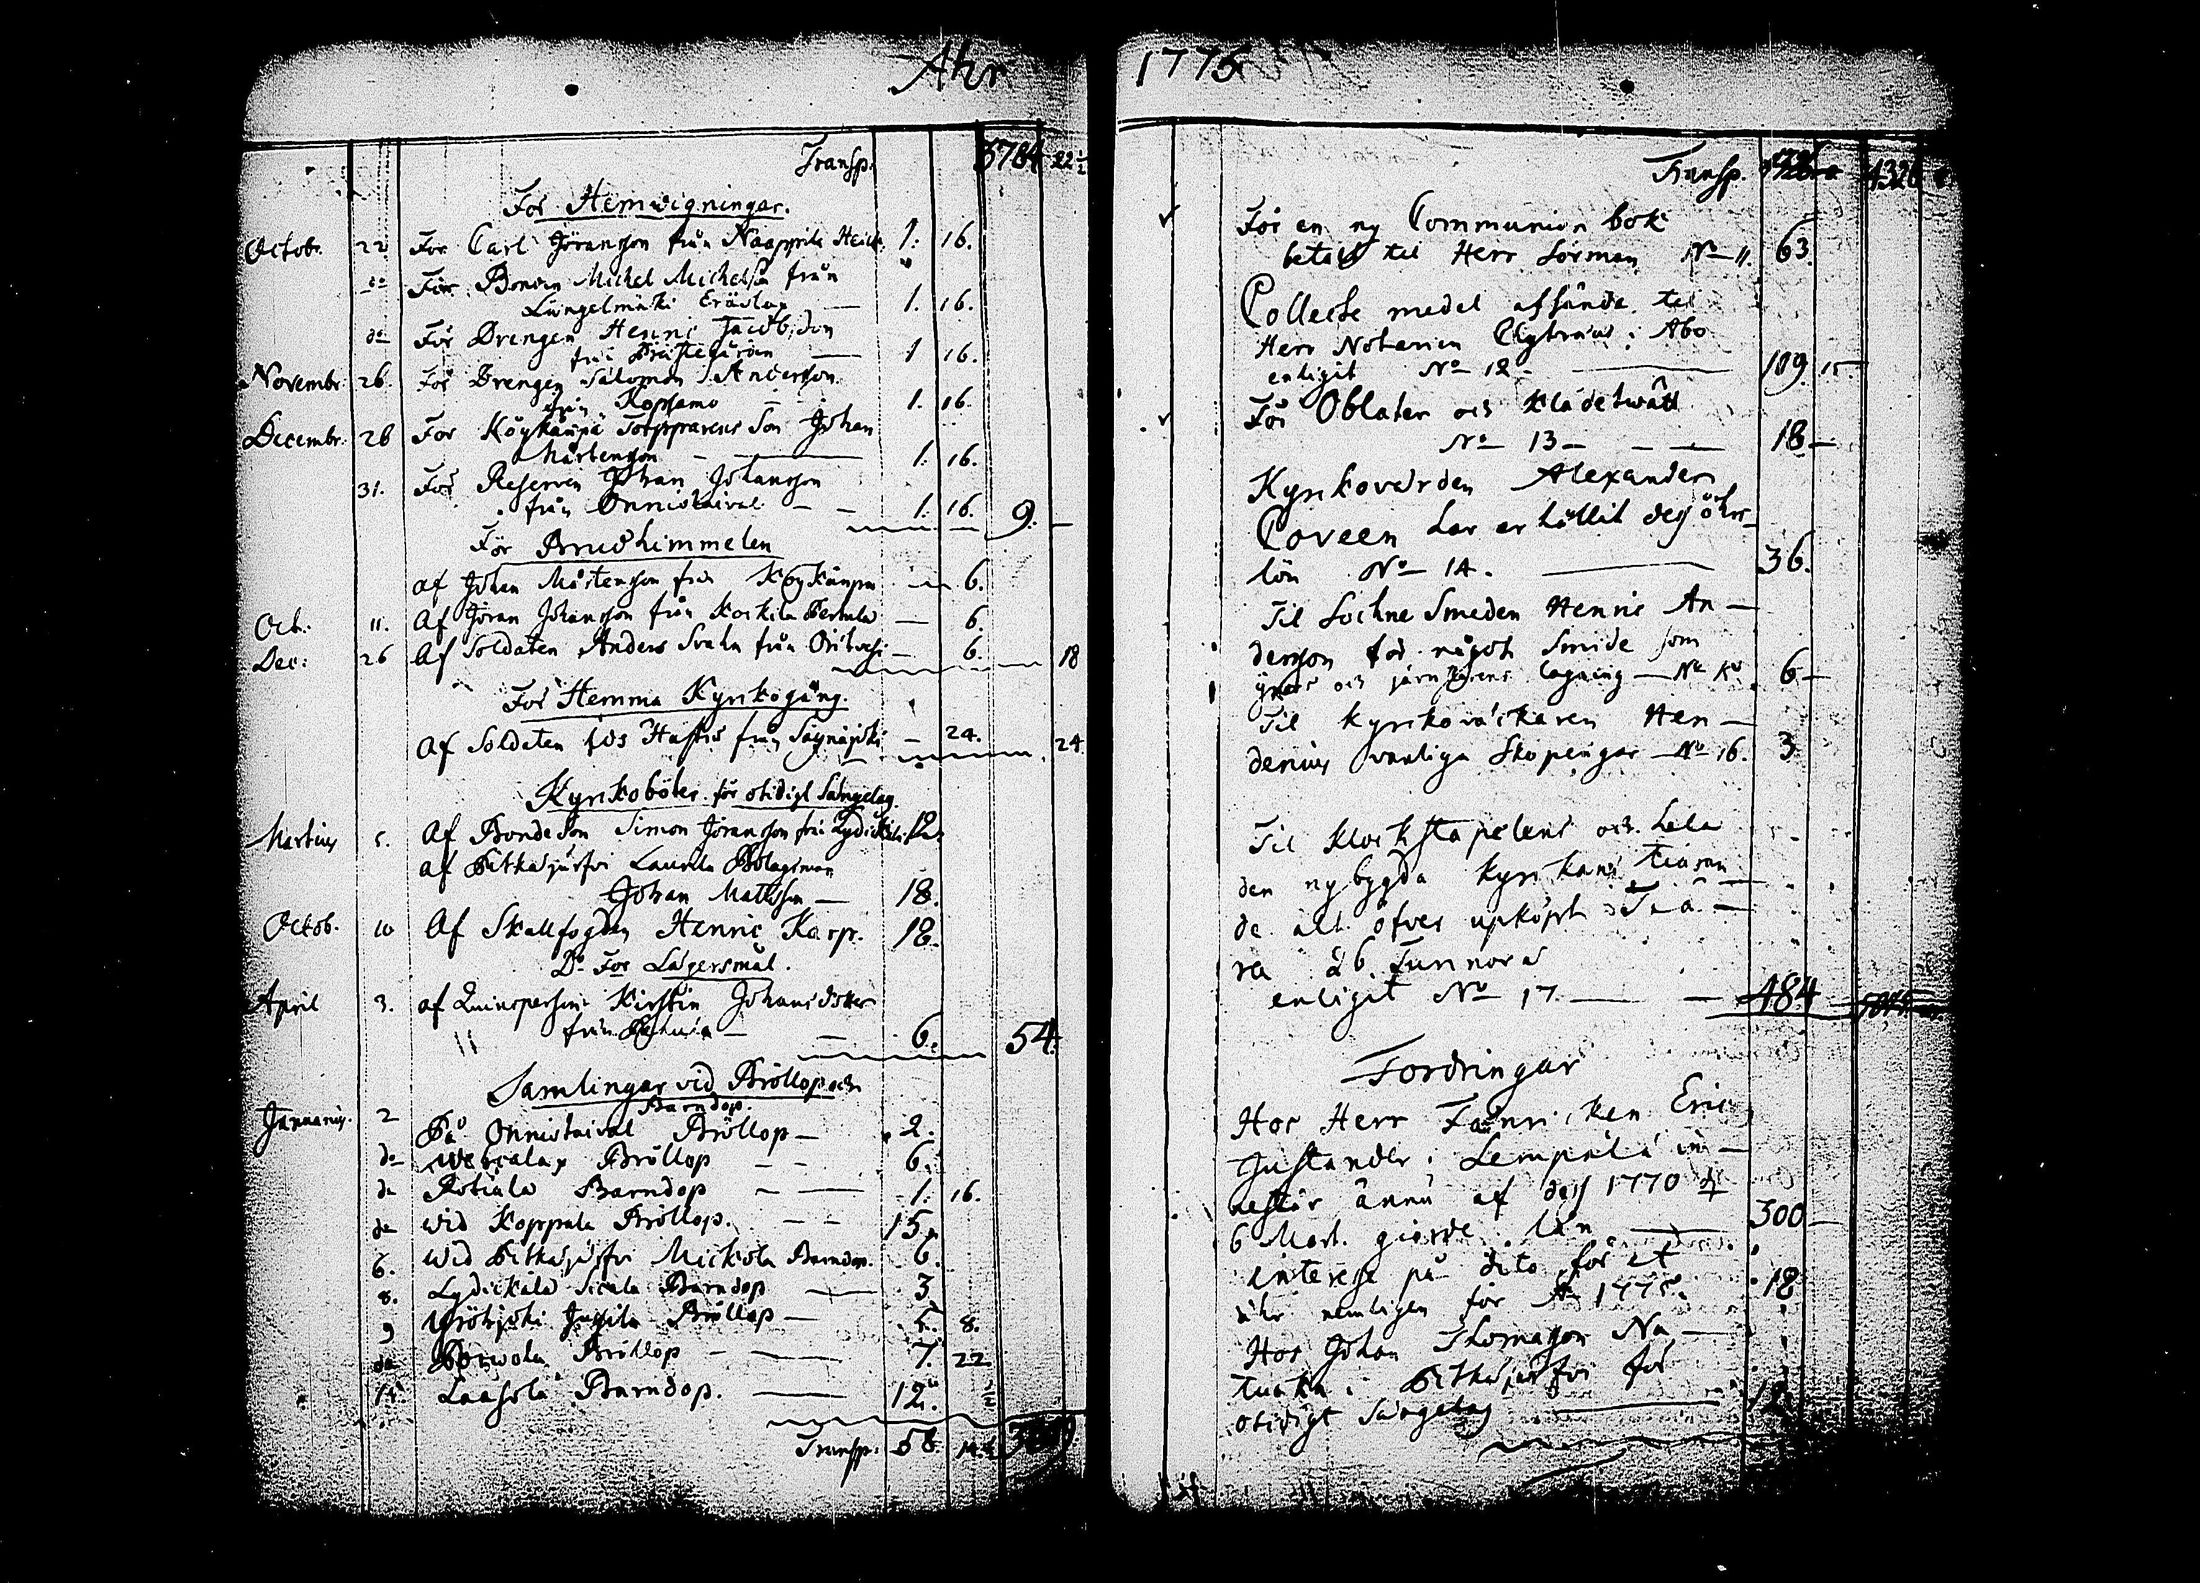 Åhr
Transp. 5784 22½
För Hemvigningar.
Octobr. 22 För Carl Jöransson från Naappila Heick. 1. 16.
do För Bonden Michel Michelss. från
Längelmäki Eräslax — 1. 16.
do För Drengen Henric Jacobsson
från Prästegården — 1 16.
Novembr. 26. För Drengen Salomon Andersson
från Kopsamo 1. 16.
Decembr. 26 För Köykänpä Torpparens Son Johan
Mårtensson — 1. 16.
31. För Reserven Johan Johansson
från Onnistaival — 1. 16. 9. —
För Brudhimmelen
af Johan Mårtensson från Köykänpä — 6.
Oct. 11. Af Jöran Johansson från Koskila — 6.
Dec: 26 Af Soldaten Anders Svahn från — 6. 18
För Hemma Kyrkogång.
Af Soldaten Hustru från — 24. 24.
Kyrkoböter för otidigt Sängelag.
Martius 5. Af Bonde Son Simon Jöransson från
af Pitkäjärfvi Laurila Bolagsman
Johan Mattsson — 18.
Octob. 10 Af Skallfogden Henric Karp. 18.
Do För Lägersmål.
April 3. af Quinspersonen Kirstin Johansdotter
från — 6. 54.
Samlingar vid Bröllop och
Barndop.
Januarius 2 På Onnistaival Bröllop — 2.
do Bröllop — 6.
do Barndop — 1. 16.
do Wid Koppala Bröllop. — 15.
6. Wid Pitkäjärfvi Mickola Barndop. 6.
8. Lydickälä Barndop — 3
9 Bröllop — 5. 8.
do Bröllop — 7. 22
14. Barndop. — 12. ½
Transp. 58
1775
Transp.
För en ny Communion bok
betalt til Herr Sörman No 11. 63.
Collecte medel afsände til
Herr Notarien i Åbo
enligit No 12 — 109. 15
För Oblater och klädetwätt
No 13 — 18 —
Kyrkovärden Alexander
Coveen har erhållit des åhrs
lön No 14. — 36.
Til Sockne Smeden Henric An-
dersson för något Smide som
och järn lagning — No 6 —
Til Kyrkoväckaren Hen-
denius vanliga Skopengar — No 16. 3
Til Klockstapelens och hela
den nybygda kyrkans tiäran
de alt öfver upköpt Tiä-
ra 26. Tunnor
enligit No 17. — 484
Fordringar
Hos Herr Fänricken Eric
Gustander i Lempälä in-
nestår ännu af des 1770 d.
6 Mart. giorde lån — 300 —
interesse på dito för et
åhr nemligen för Ao 1775. 18
Hos Johan Thomasson Na-
i Pitkäjärfvi för
otidigt Sängelag — 12